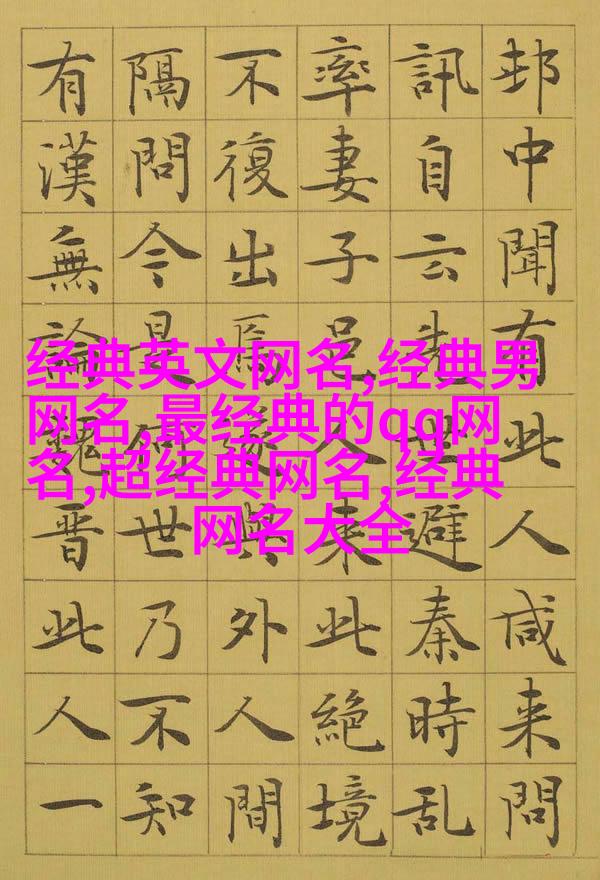 邨中聞有此人咸来問
訊自云先世避秦時乱
率妻子邑人来此絶境
不復出焉遂與外人間
隔問今是何世乃不知
有漢無論魏晋此人一
经典英文网名,经典男
网名,最经典的qq网
名,超经典网名,经典
网名大全